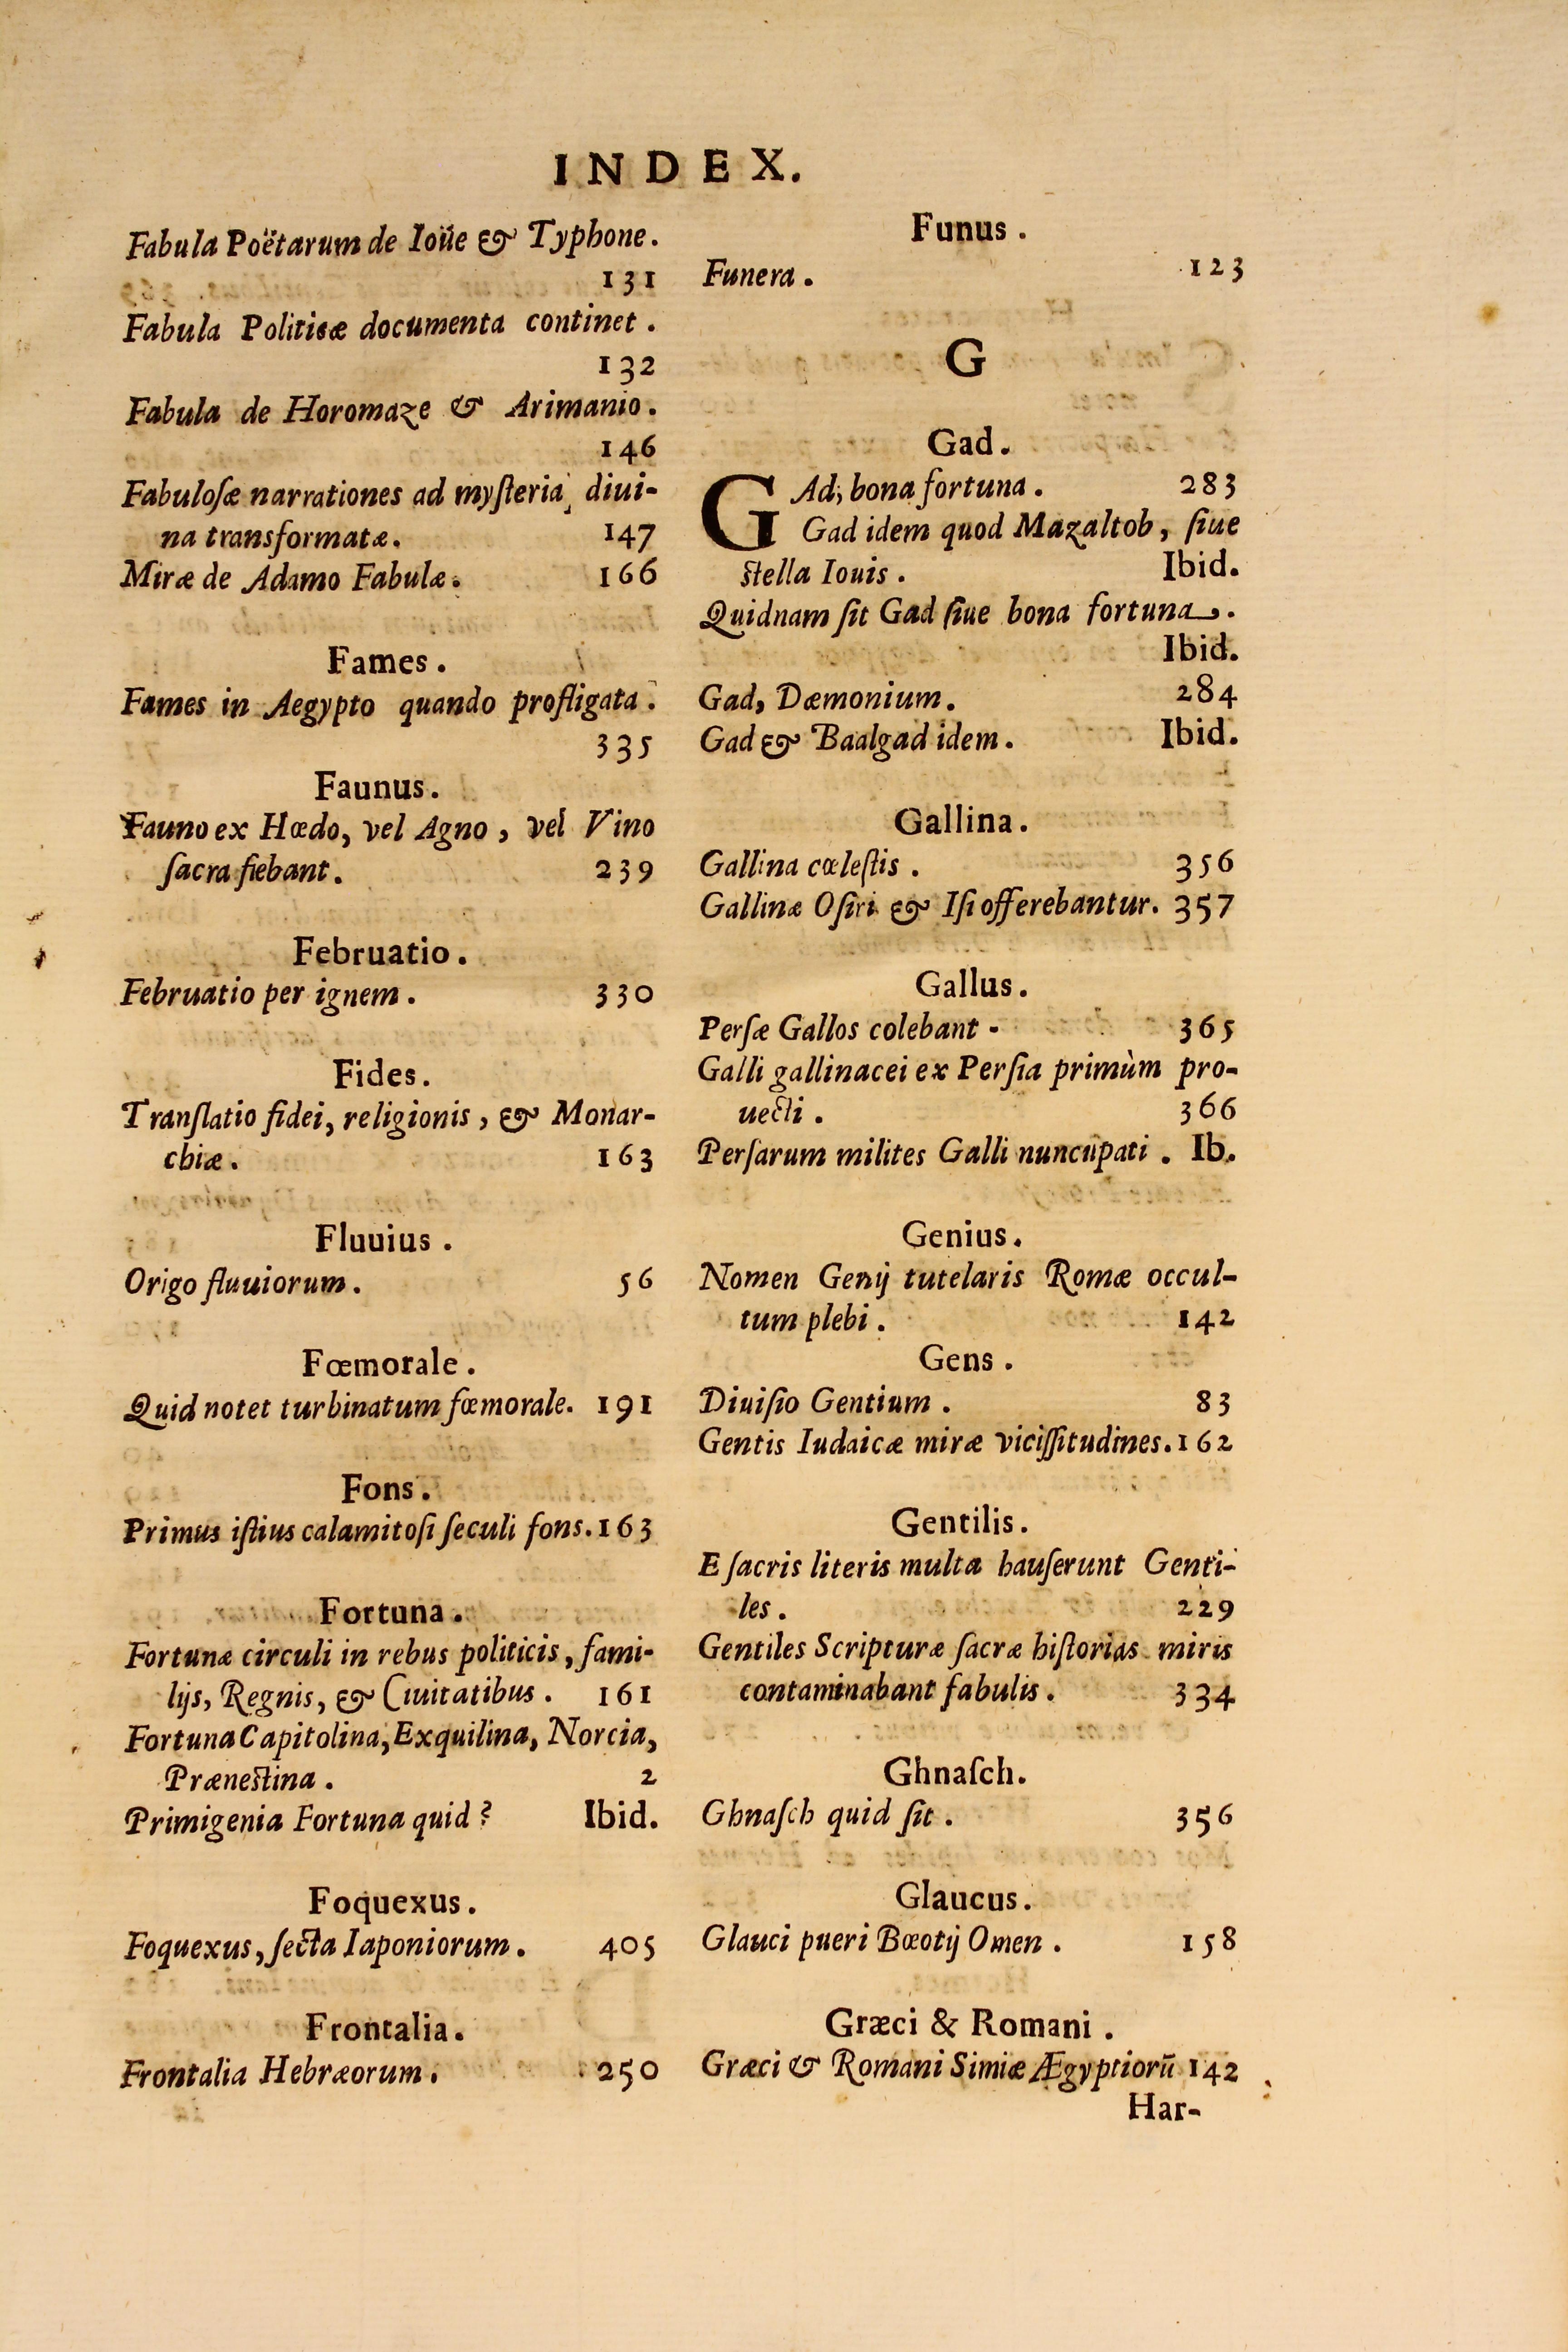 INDEX.
Fabula Poëtarum de Ioüe & Typhone.
131
Fabula Politicæ documenta continet.
132
Fabula de Horomaze & Arimanio.
146
Fabuloſæ narrationes ad myſteria diui-
na transformatæ.	147
Miræ de Adamo Fabulæ.	166
Fames.
Fames in Aegypto quando profligata.
335
Faunus.
Fauno ex Hœdo, vel Agno, vel Vino
ſacra fiebant.	239
Februatio.
Februatio per ignem.	330
Fides.
Tranſlatio fidei, religionis, & Monar-
chiæ.	163
Fluuius.
Origo fluuiorum.	56
Fœmorale.
Quid notet turbinatum fœmorale. 191
Fons.
Primus iſtius calamitoſi ſeculi fons. 163
Fortuna.
Fortunæ circuli in rebus politicis, fami-
lijs, Regnis, & Ciuitatibus.	161
Fortuna Capitolina, Exquilina, Norcia,
Præneſtina.	2
Primigenia Fortuna quid?	Ibid.
Foquexus.
Foquexus, ſecta Iaponiorum.	405
Frontalia.
Frontalia Hebræorum.	250
Funus.
Funera.	123
G
Gad.
GAd, bona fortuna.	283
Gad idem quod Mazaltob, ſiue
ſtella Iouis.	Ibid.
Quidnam ſit Gad ſiue bona fortuna.
Ibid.
Gad, Dæmonium.	284
Gad & Baalgad idem.	Ibid.
Gallina.
Gallina cœleſtis.	356
Gallinæ Oſiri & Iſi offerebantur. 357
Gallus.
Perſæ Gallos colebant -	365
Galli gallinacei ex Perſia primùm pro-
uecti.	366
Perſarum milites Galli nuncupati. Ib.
Genius.
Nomen Genij tutelaris Romæ occul-
tum plebi.	142
Gens.
Diuiſio Gentium.	83
Gentis Iudaicæ miræ viciſſitudines. 162
Gentilis.
E ſacris literis multa hauſerunt Genti-
les.	229
Gentiles Scripturæ ſacræ hiſtorias miris
contaminabant fabulis.	334
Ghnaſch.
Ghnaſch quid ſit.	356
Glaucus.
Glauci pueri Bœotij Omen.	158
Græci & Romani.
Græci & Romani Simiæ Ægyptiorū 142
Har-